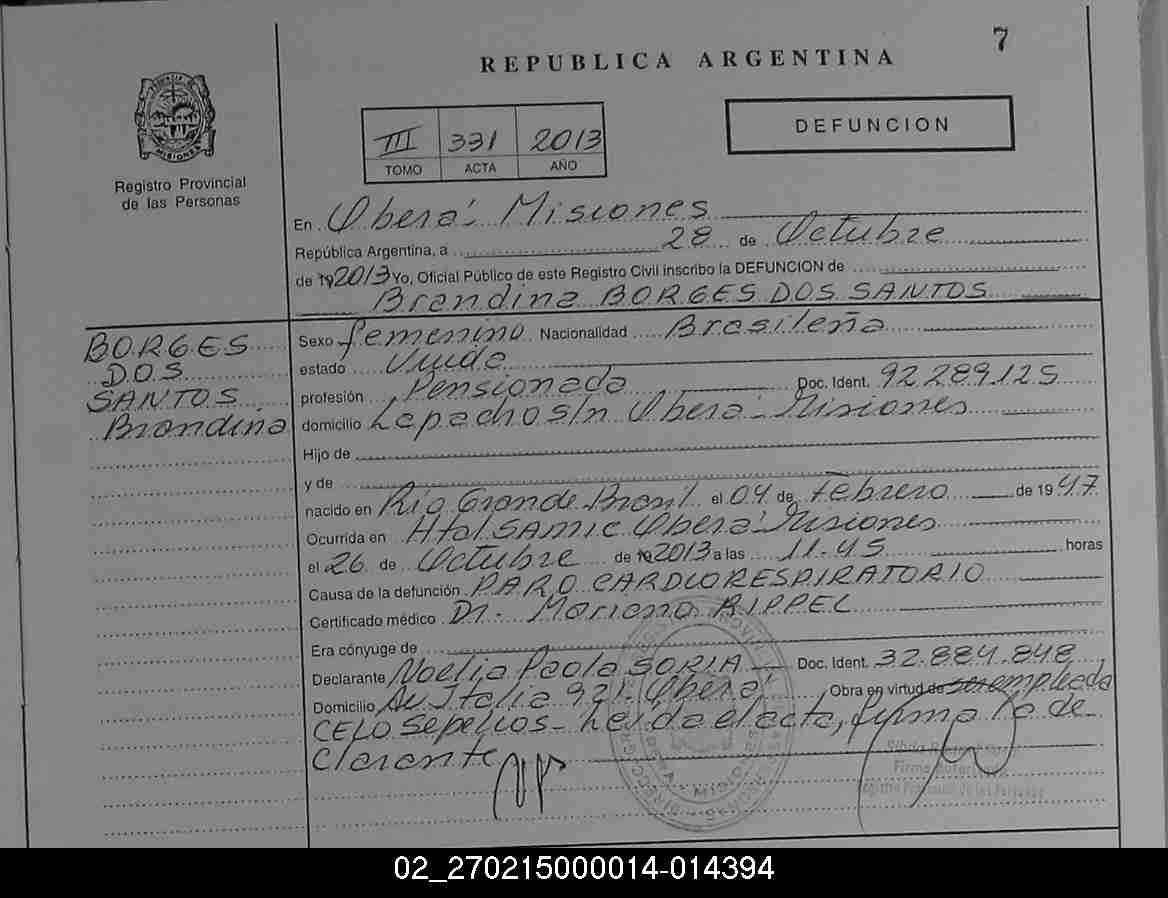 7
REPUBLICA ARGENTINA
III 331 2013
TOMO ACTA AÑO
DEFUNCION
PROVINCIA DE
MISIONES
Registro Provincial
de las Personas
En Oberá - Misiones
República Argentina, a 28 de Octubre
de 192013 Yo, Oficial Público de este Registro Civil inscribo la DEFUNCION de
Brandina BORGES DOS SANTOS
BORGES
DOS
SANTOS
Brandina
Sexo femenino Nacionalidad Brasileña
estado Viuda
profesión Pensionada Doc. Ident. 92.289.125
domicilio Lapacho s/n Oberá - Misiones
Hijo de
y de
nacido en Río Grande Brasil el 04 de Febrero de 1947
Ocurrida en Htal SAMIC Oberá - Misiones
el 26 de Octubre de 192013 a las 11.45 horas
Causa de la defunción PARO CARDIORESPIRATORIO
Certificado médico Dr. Mariano RIPPEL
Era cónyuge de
Declarante Noelia Paola SORIA Doc. Ident. 32.884.848
Domicilio Av Italia 921. Oberá Obra en virtud de ser empleada
CELO Sepelios - Leída el acta, firma la de-
clarante
Firma Autorizada
Registro Provincial de las Personas
02_270215000014-014394